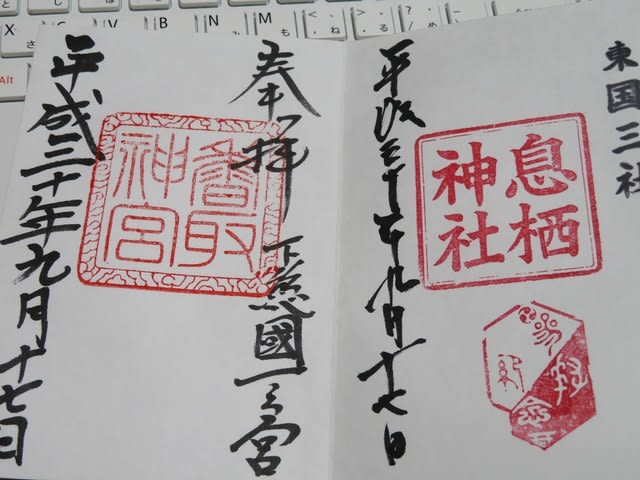 東国三社
息栖
神社
平成三十年九月十七日
奉拝
下総國一之宮
香取
神宮
平成三十年九月十七日